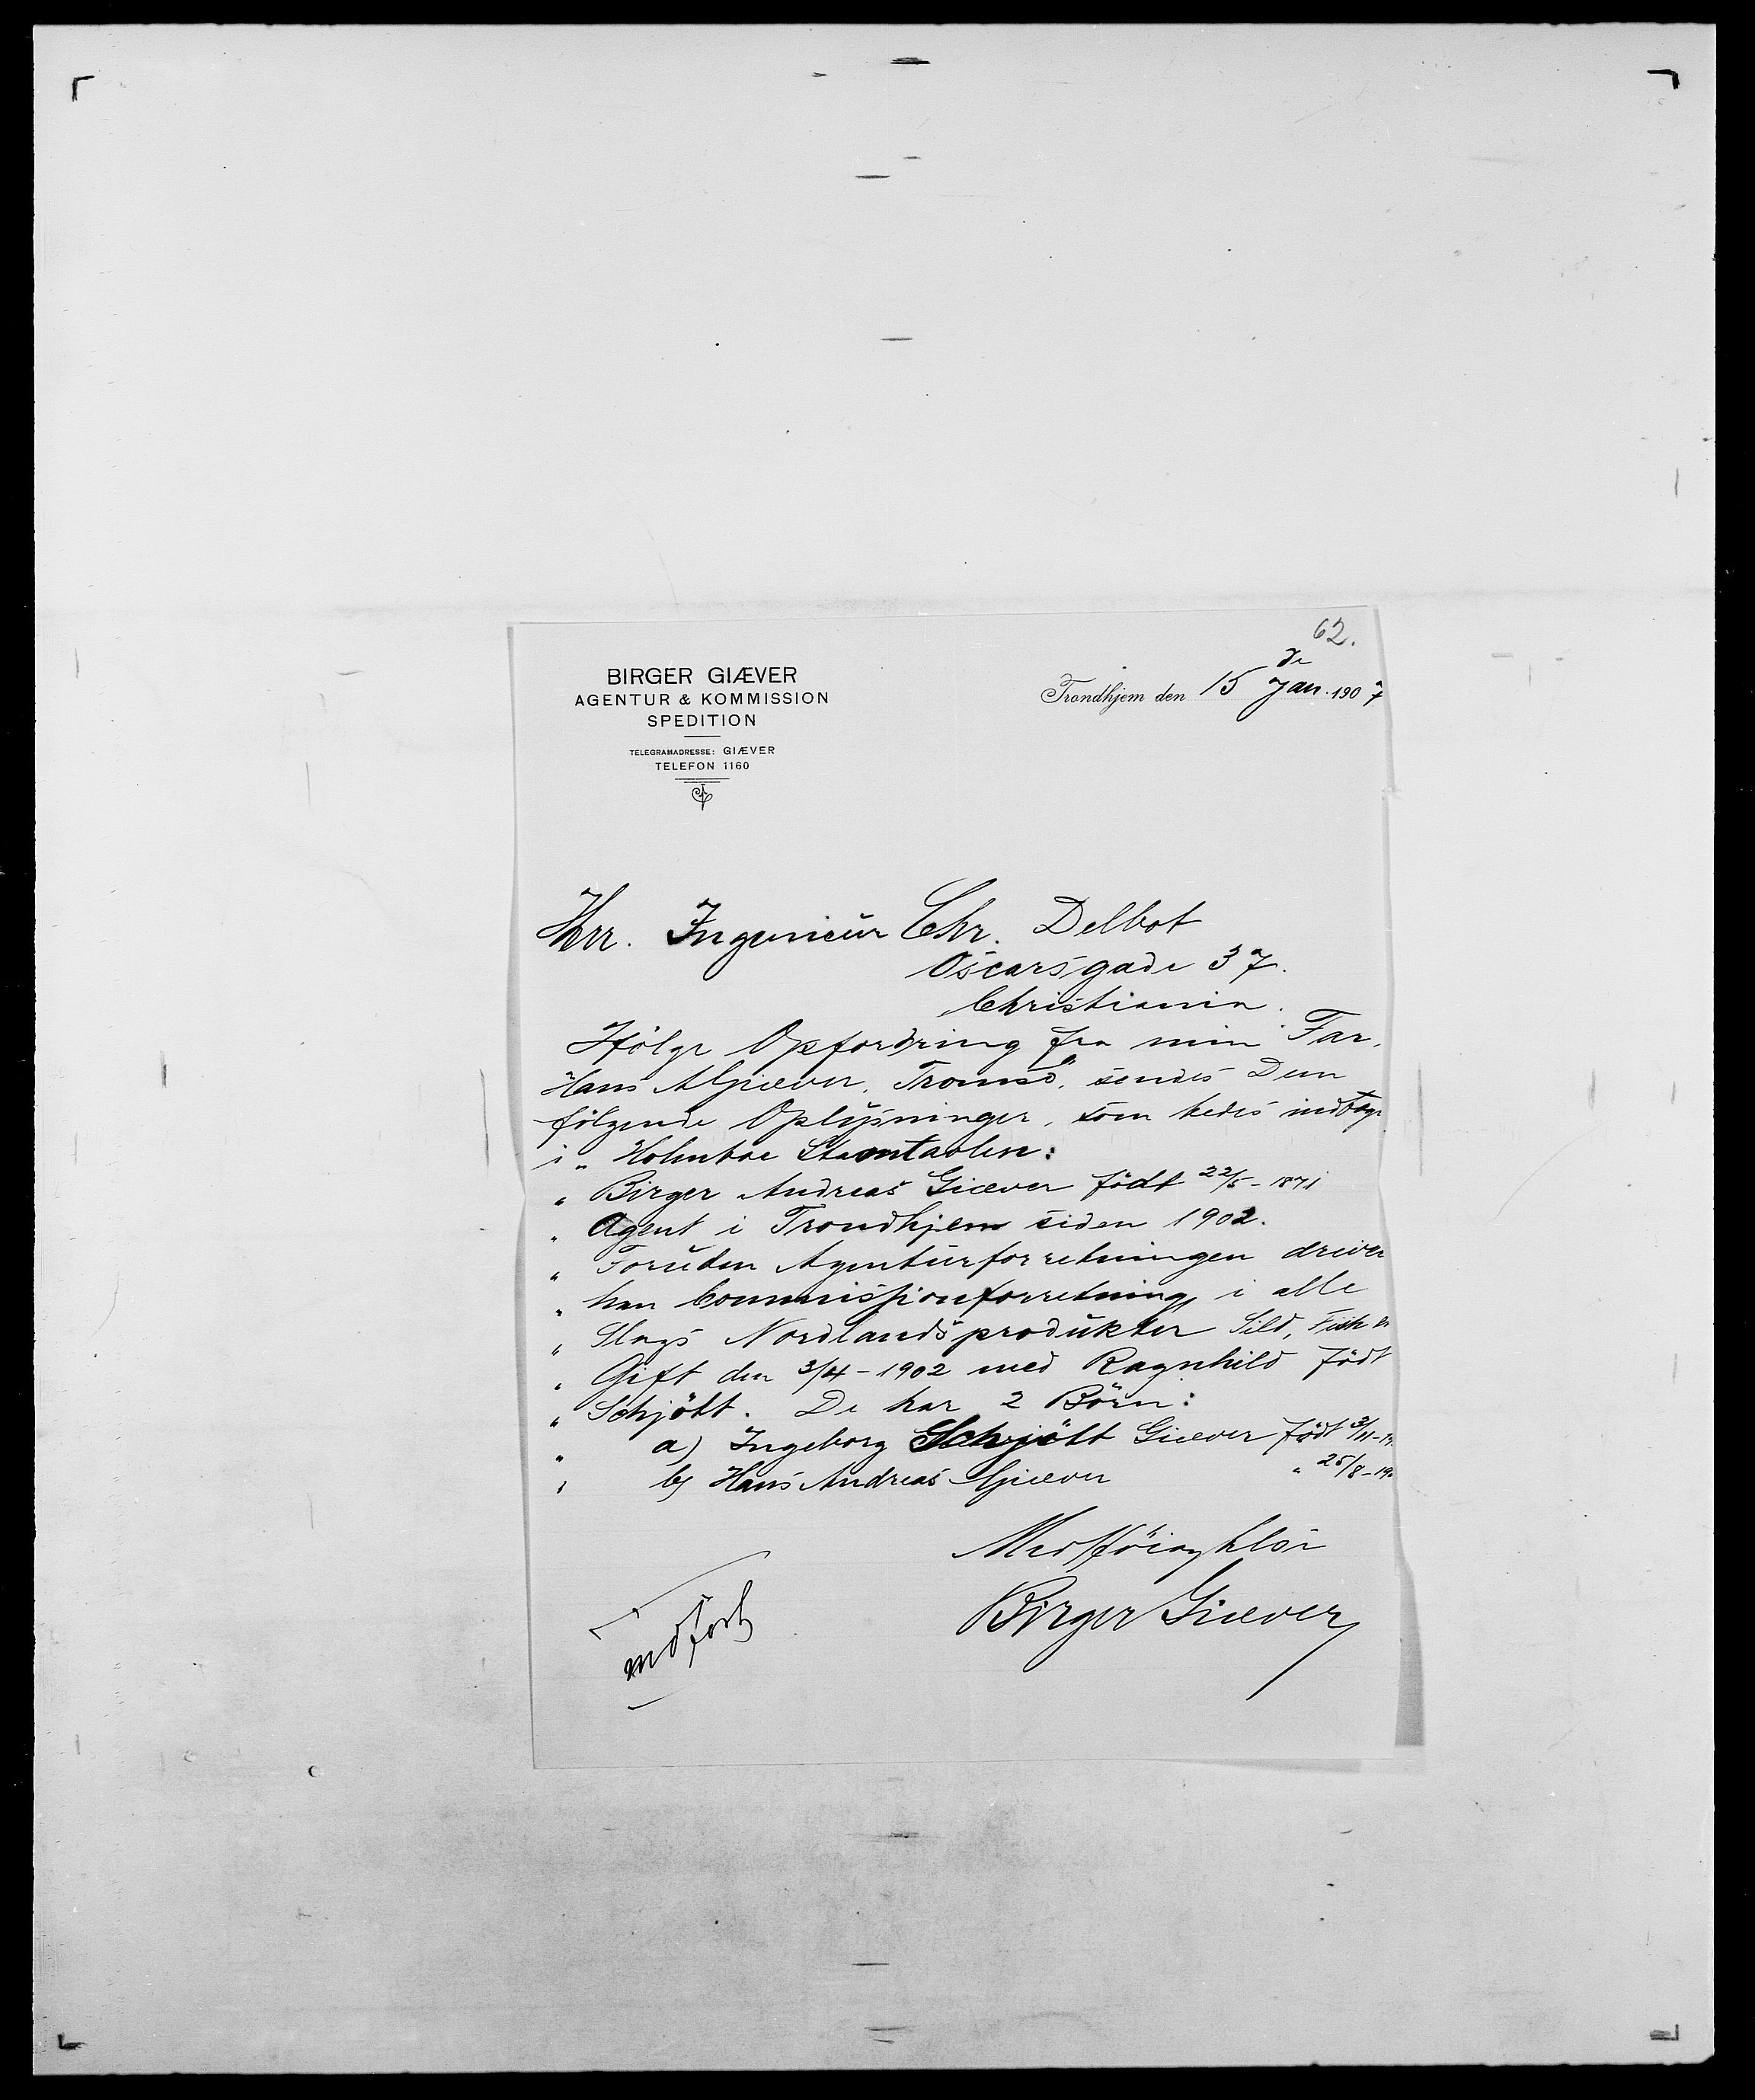 62.
BIRGER GIÆVER
AGENTUR & KOMMISSION
SPEDITION
TELEGRAMADRESSE: GIÆVER
TELEFON 1160
Trondhjem den 15 de Jan. 1907
Herr. Ingeniör Chr. Delbot
Oscarsgade 37.
Christiania.
Ifölge Opfordring fra min Far,
Hans A Giæver, Tromsö, sendes Dem
fölgende Oplysninger, som bedes indtage
i „ Holmboe Stamtavlen:
„ Birger Andreas Giæver födt 22/5 - 1871
„ Agent i Trondhjem siden 1902.
„ Foruden Agenturforretningen driver
„ han Commissionforretning i alle
„ Slags Nordlandsprodukter Sild, Fisk
„ Gift den 3/4 - 1902 med Ragnhild födt
„ Schjött. De har 2 Börn:
„ a) Ingeborg Schjött Giæver födt 3/11 - 19
„ b) Hans Andreas Giæver „ 25/8 - 19
Med Höiagtelse
Birger Giæver
indfört